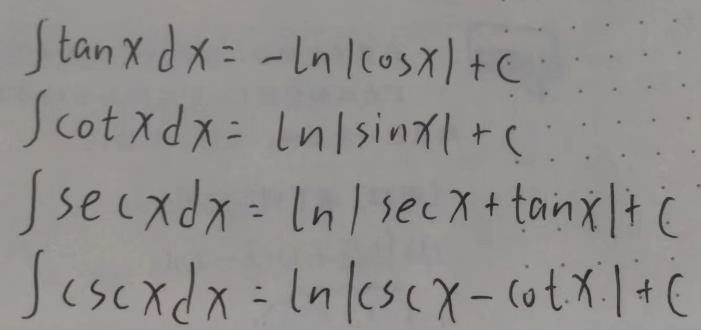 ∫tanxdx = -ln|cosx|+C
∫cotxdx = ln|sinx|+C
∫secxdx = ln|secx+tanx|+C
∫cscxdx = ln|cscx-cotx|+C